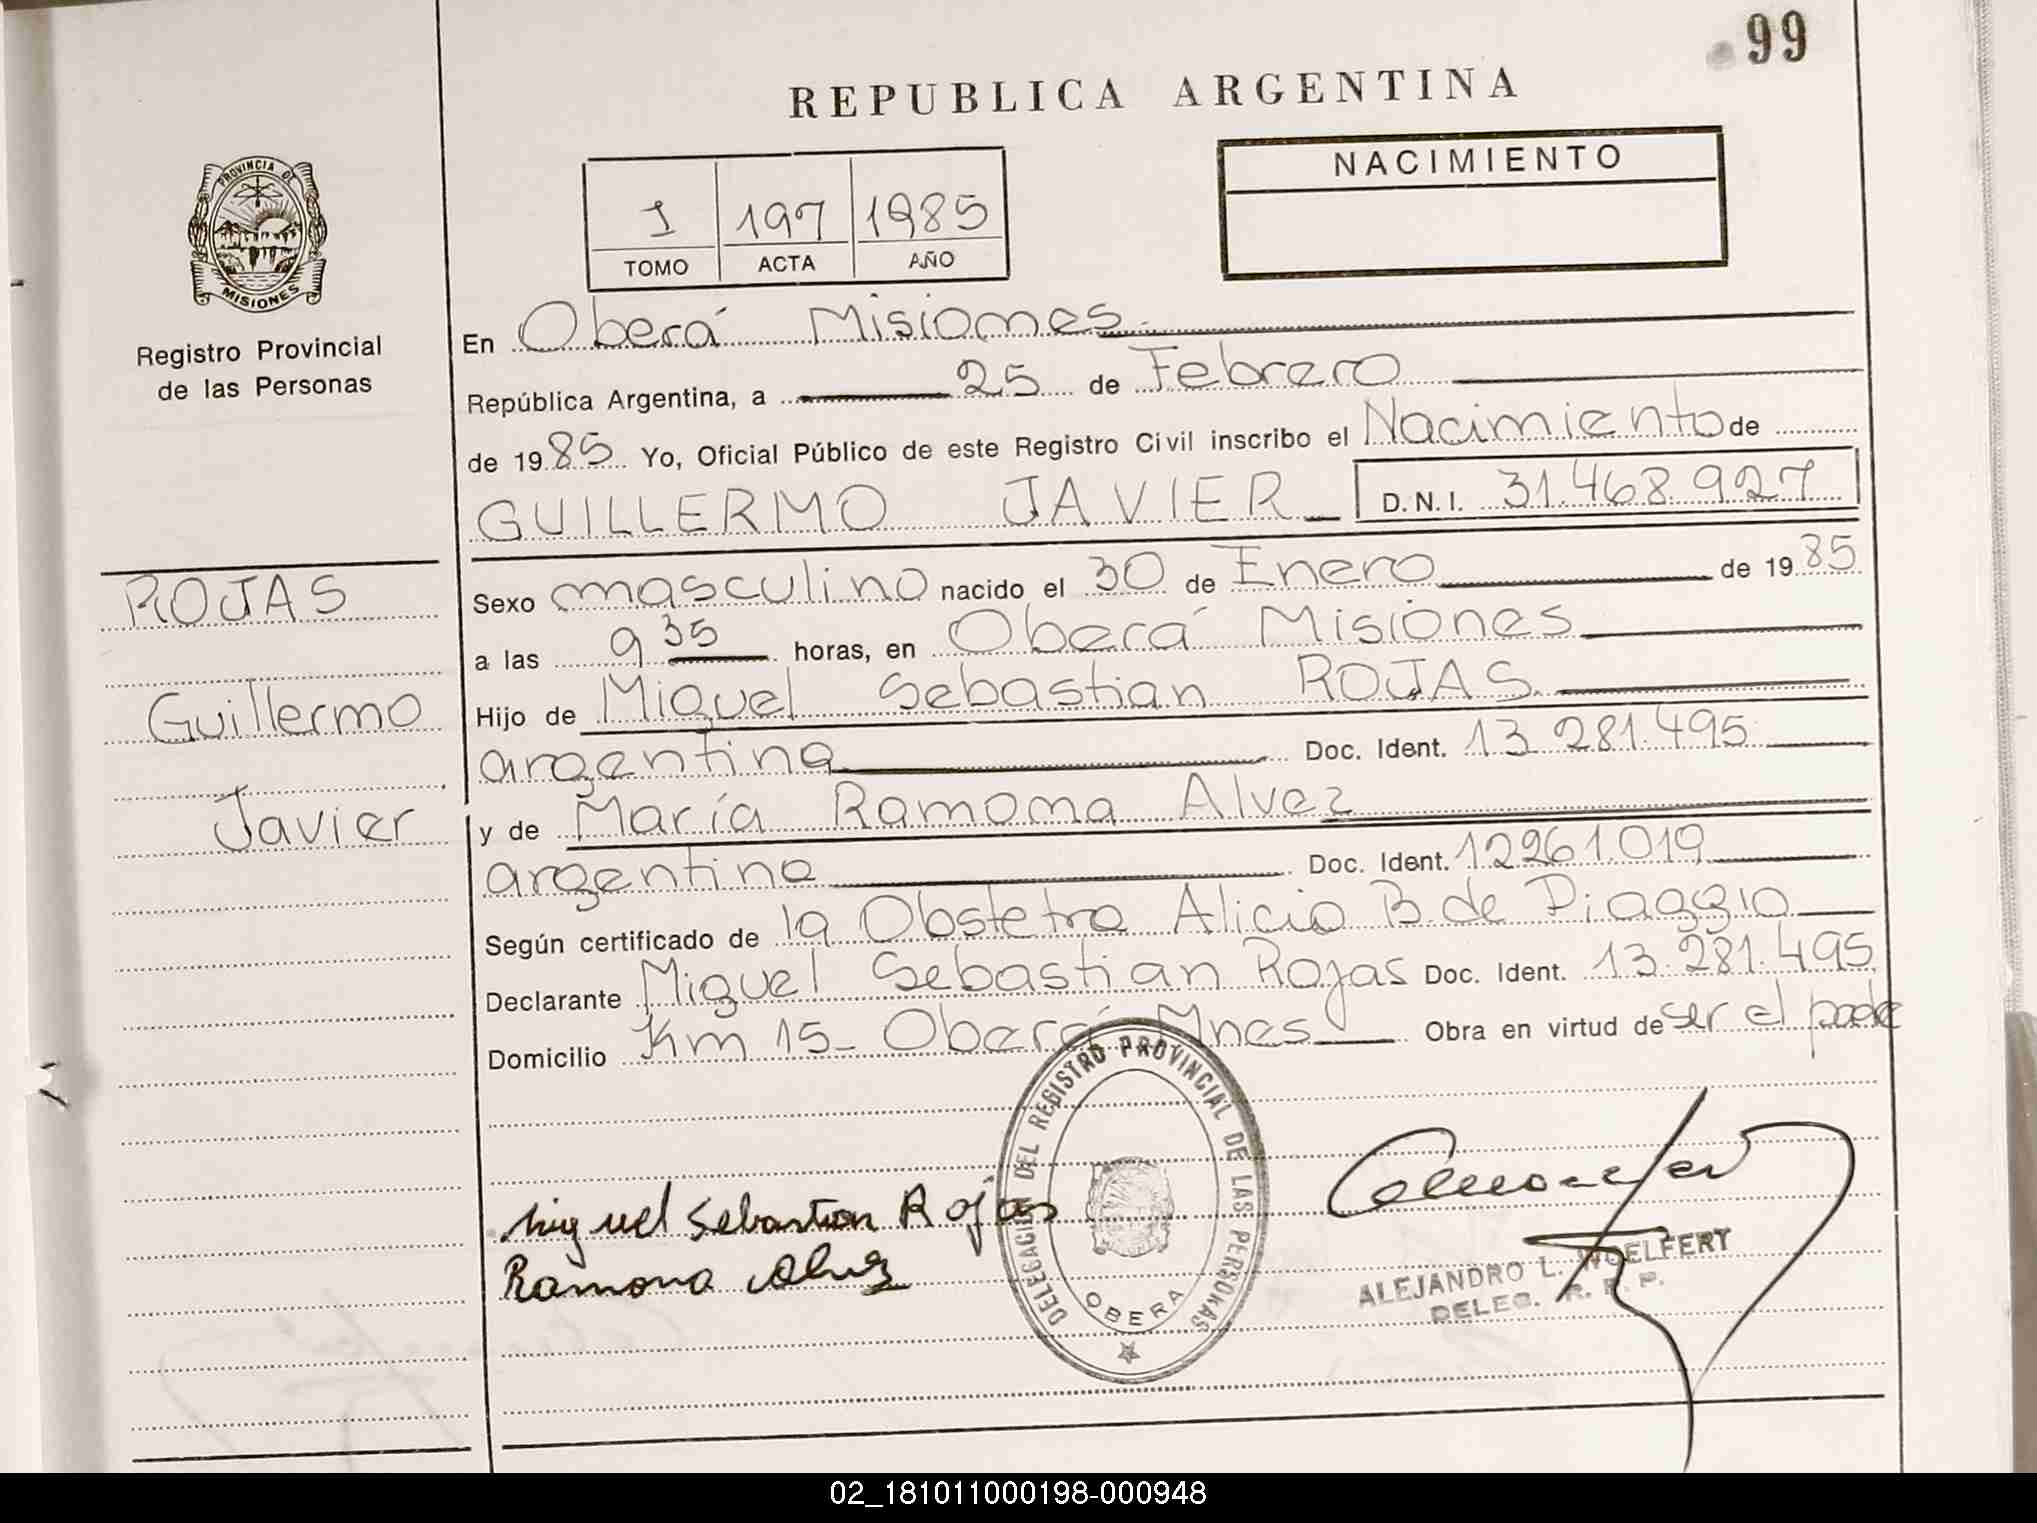 99
REPUBLICA ARGENTINA
PROVINCIA DE
MISIONES
Registro Provincial
de las Personas
NACIMIENTO
1 197 1985
TOMO ACTA AÑO
En Oberá Misiones
República Argentina, a 25 de Febrero
de 1985 Yo, Oficial Público de este Registro Civil inscribo el Nacimiento de
GUILLERMO JAVIER D.N.I. 31.468.927
ROJAS
Guillermo
Javier
Sexo masculino nacido el 30 de Enero de 1985
a las 9 35 horas, en Oberá Misiones
Hijo de Miguel Sebastian ROJAS
argentina Doc. Ident. 13 281.495
y de María Ramona Alvez
argentina Doc. Ident. 12261.019
Según certificado de la Obstetra Alicia B. de Piaggio
Declarante Miguel Sebastian Rojas Doc. Ident. 13.281.495
Domicilio Km 15- Oberá Mnes Obra en virtud de ser el padre
DELEGACION DEL REGISTRO PROVINCIAL DE LAS PERSONAS
OBERA
Miguel Sebastian Rojas
Ramona Alvez
ALEJANDRO L. WOELFERT
DELEG. R. P. P.
02_181011000198-000948